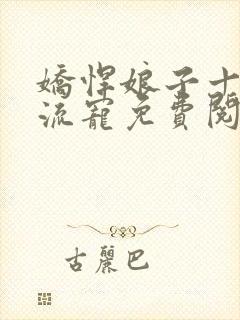 嬌悍娘子十
流寵免費閱
古麗巴